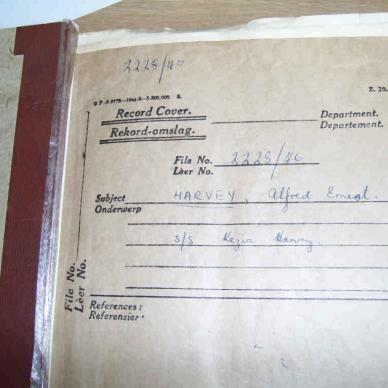 2228/46
G.P.-S.6779—1944-5—3,600,000. S.
Z. 20.
Record Cover. Department.
Rekord-omslag. Departement.
File No. 2228/46
Leer No.
Subject HARVEY, Alfred Ernest.
Onderwerp
s/s Kezia Harvey.
File No.
Leer No.
References:
Referensier.